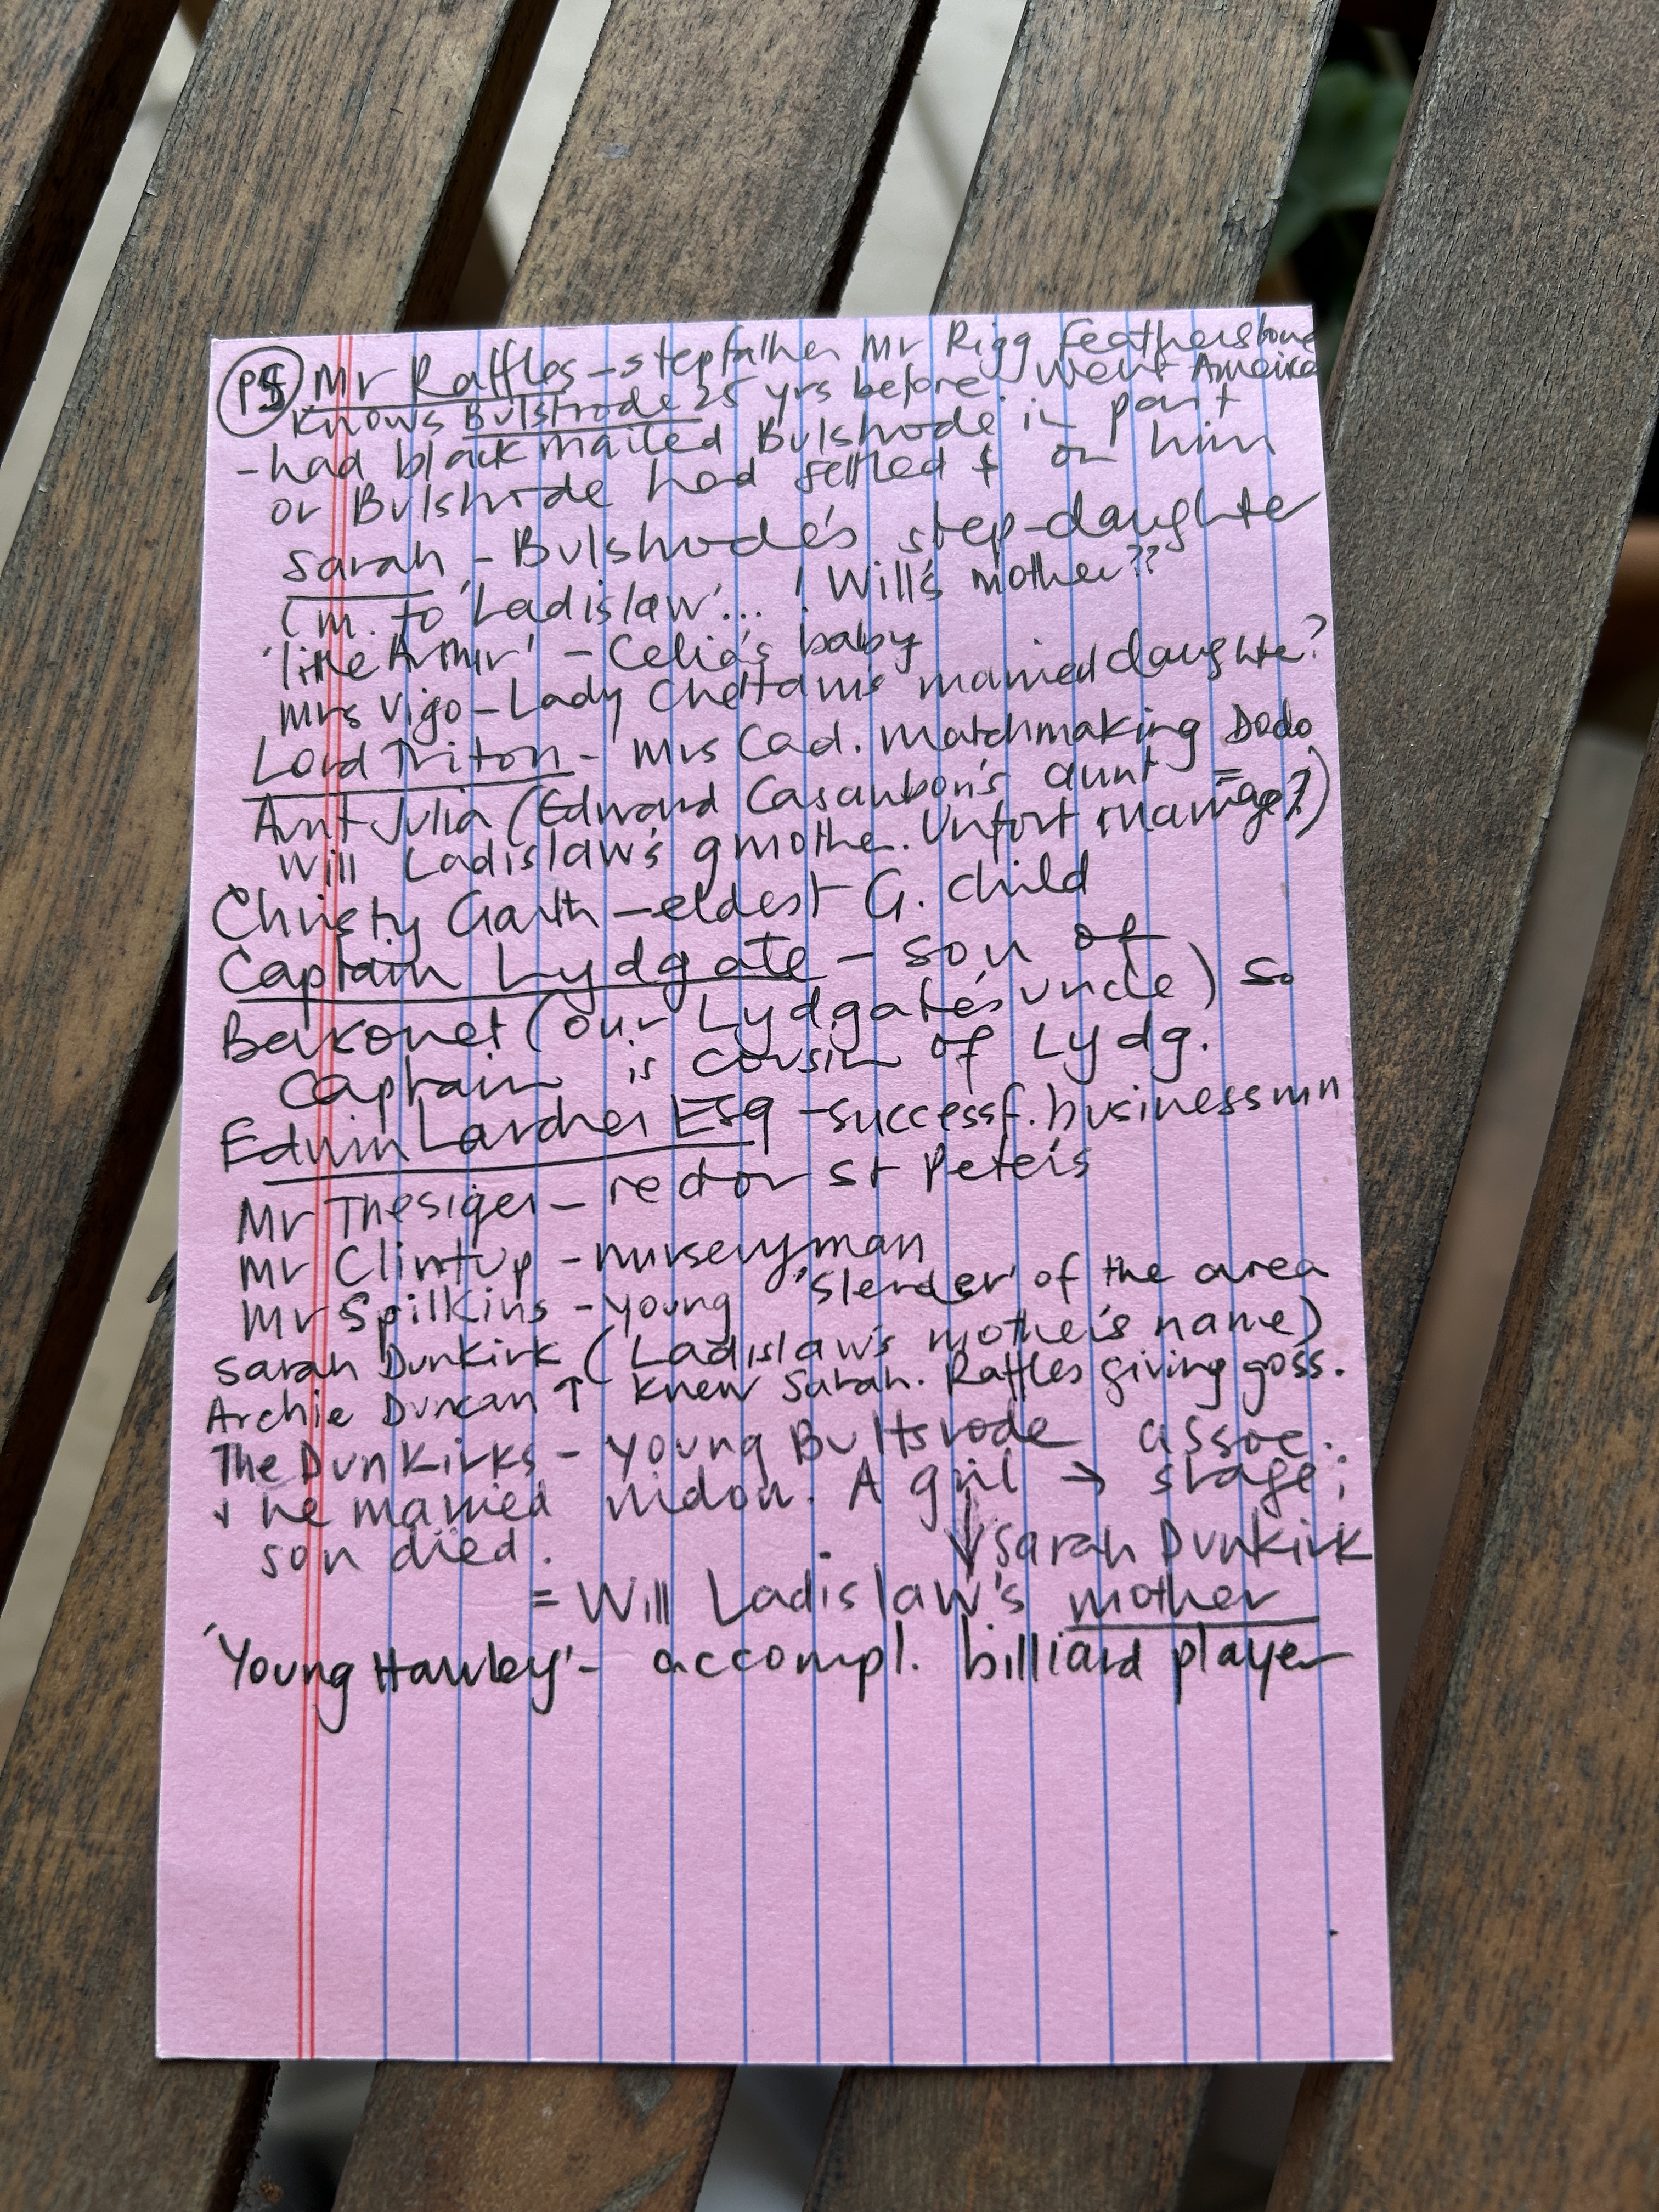 P5 Mr Raffles - stepfather Mr Rigg Featherstone
knows Bulstrode 25 yrs before. Went America
- had blackmailed Bulstrode in past
or Bulstrode had settled £ on him
Sarah - Bulstrode's step-daughter
(m. to 'Ladislaw'... ! Will's mother??
'little Arthur' - Celia's baby
Mrs Vigo - Lady Chettam's married daughter?
Lord Triton - Mrs Cad. matchmaking Dodo
Aunt Julia (Edward Casaubon's aunt =
Will Ladislaw's gmother. Unfort marriage?)
Christy Garth - eldest G. child
Captain Lydgate - son of
Baronet (our Lydgate's uncle) so
Captain is cousin of Lydg.
Edwin Larcher Esq - successf. businessmn
Mr Thesiger - rector St Peter's
Mr Clintup - nurseryman
Mr Spilkins - young 'Slender' of the area
Sarah Dunkirk (Ladislaw's mother's name)
Archie Duncan ↑ knew Sarah. Raffles giving goss.
The Dunkirks - young Bultsrode assoc.
+ he married widow. A girl → stage;
son died. ↓ Sarah Dunkirk
= Will Ladislaw's mother
'Young Hawley' - accompl. billiard player